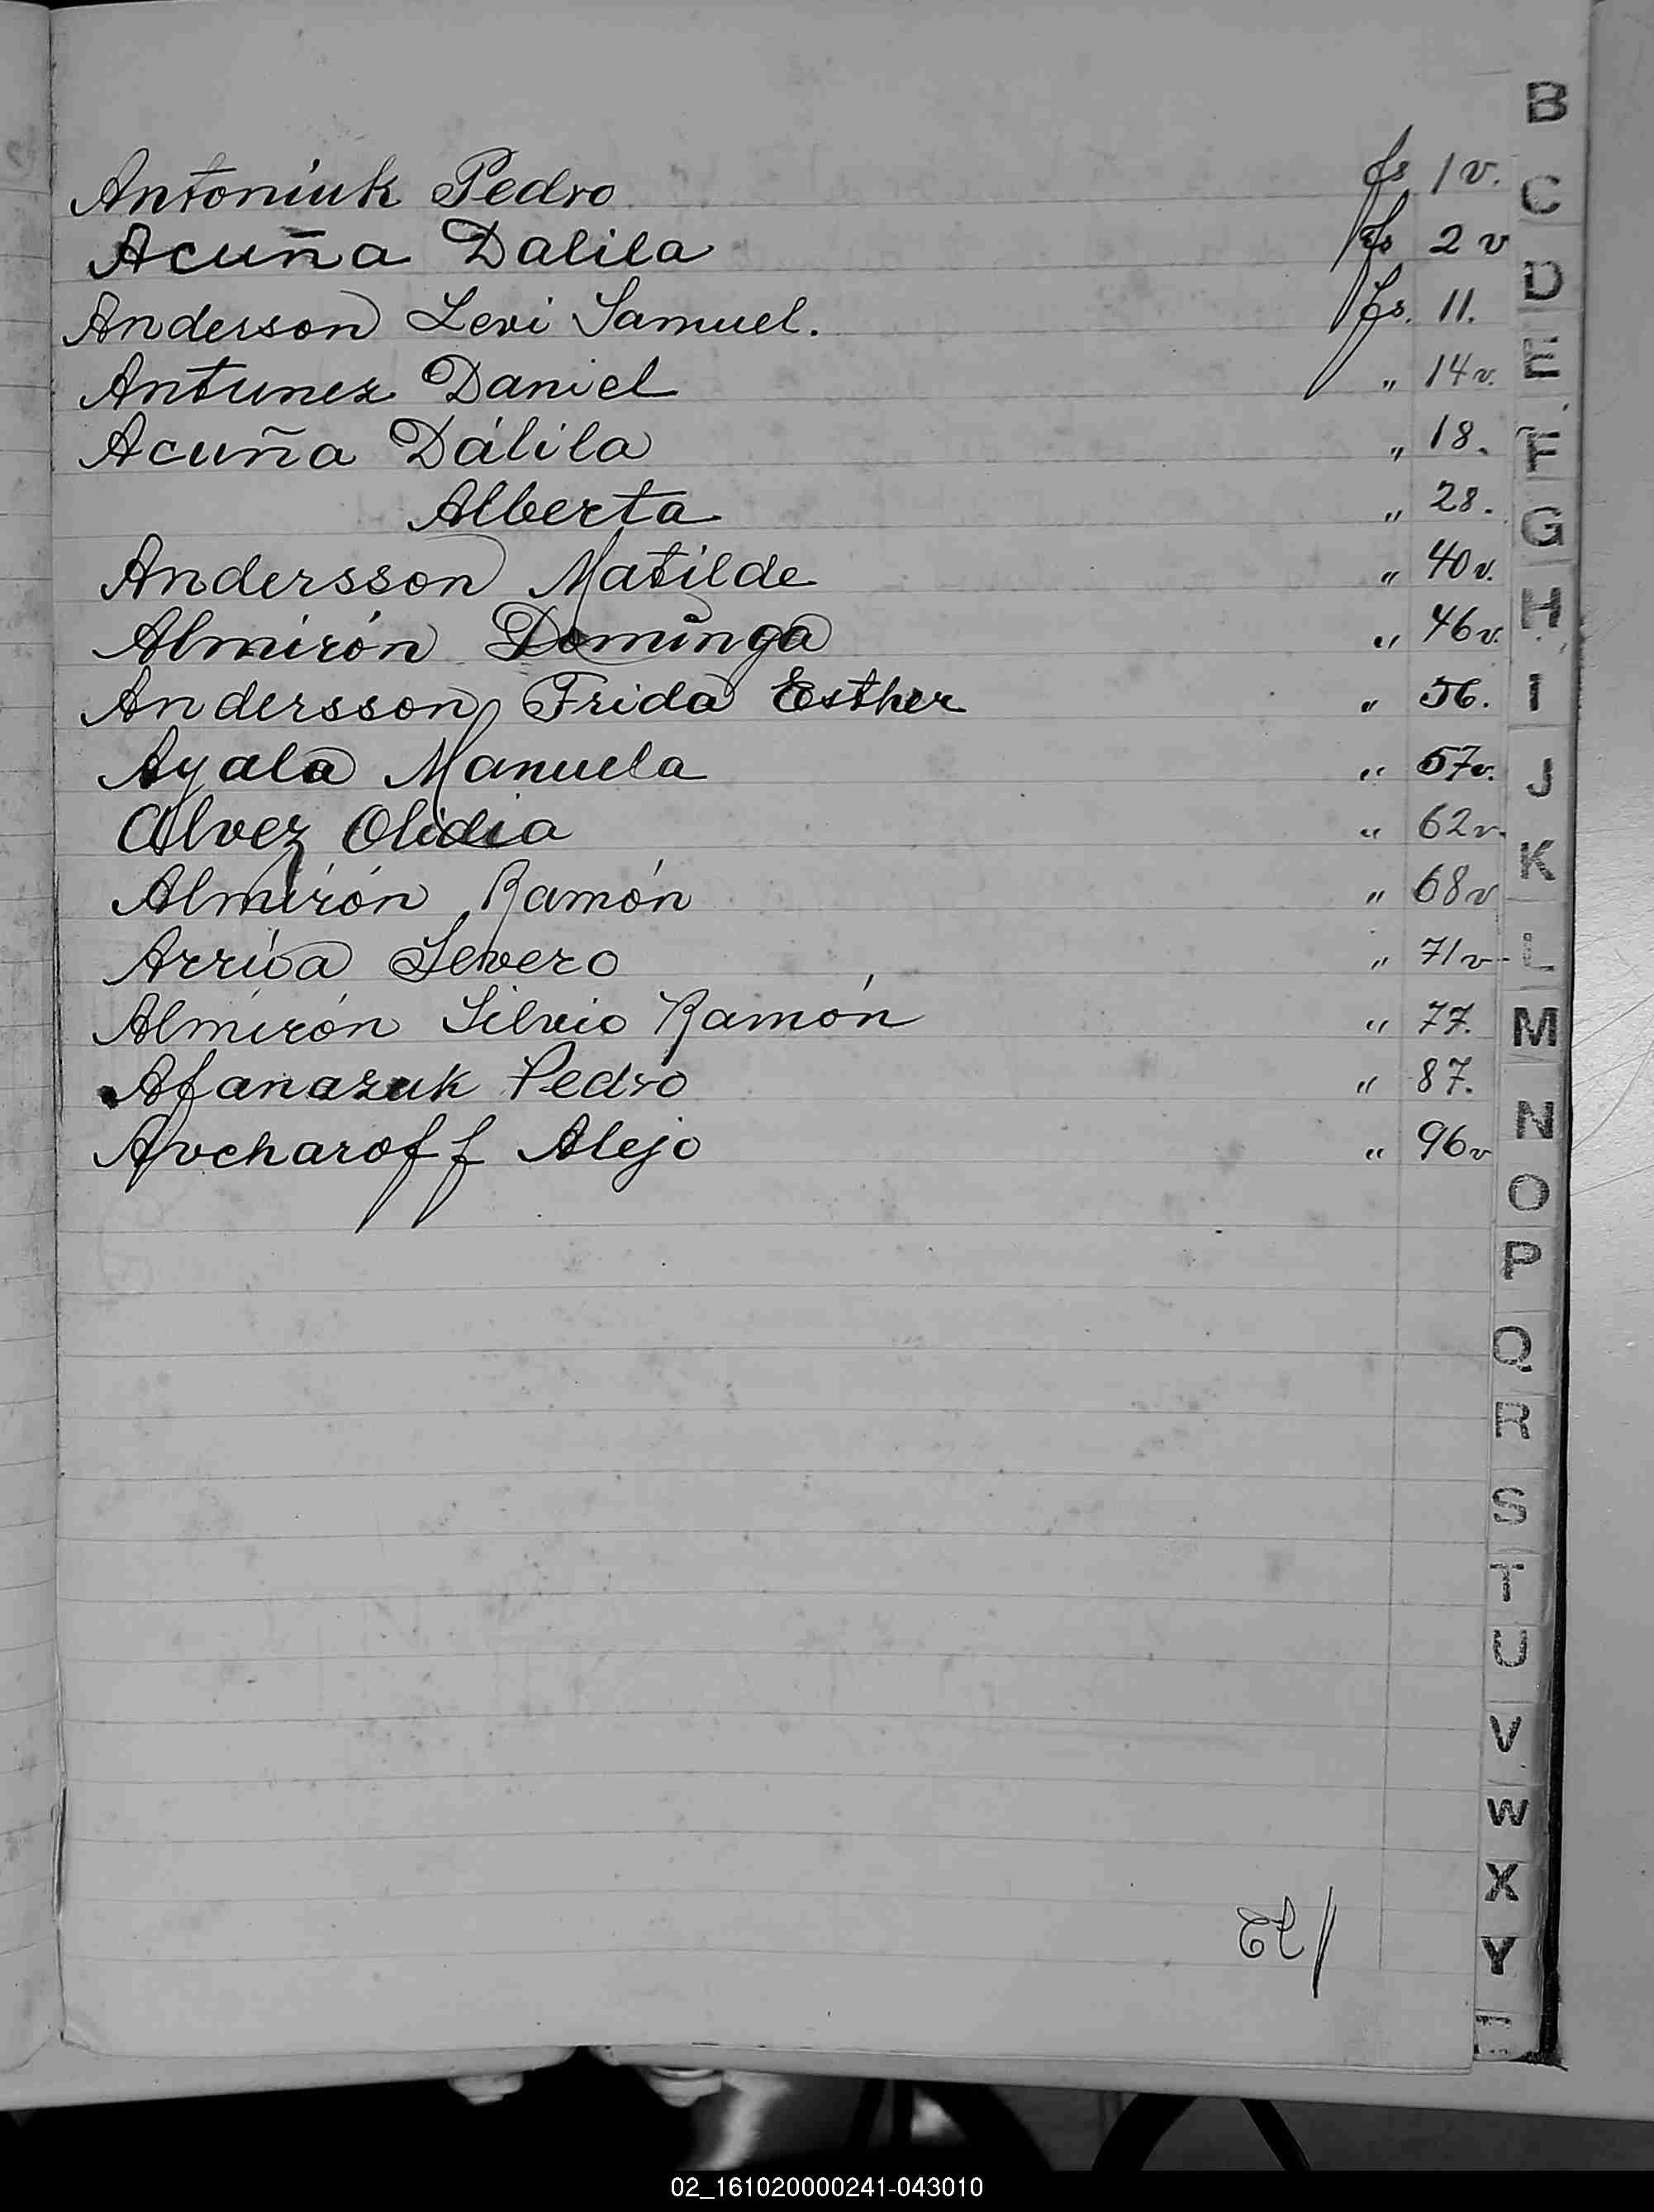 Antoniuk Pedro fs 1v.
Acuña Dalila fs 2v
Anderson Levi Samuel. fs. 11.
Antunez Daniel " 14v.
Acuña Dálila " 18.
Alberta " 28.
Andersson Matilde " 40v.
Almirón Dominga " 46v.
Andersson Frida Esther " 56.
Ayala Manuela " 57v.
Alvez Olidia " 62v.
Almirón Ramón " 68v
Arriva Severo " 71v
Almirón Silvio Ramón " 77.
Afanazuk Pedro " 87.
Avcharoff Alejo " 96v
B
C
D
E
F
G
H
I
J
K
L
M
N
O
P
Q
R
S
T
U
V
W
X
Y
02_161020000241-043010